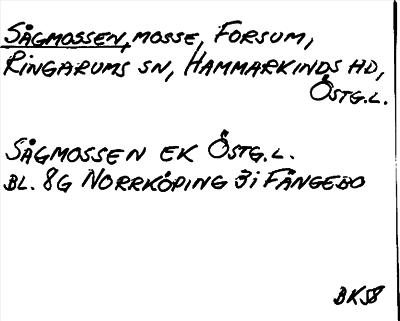 SÅGMOSSEN, MOSSE, FORSUM,
RINGARUMS SN, HAMMARKINDS HD,
ÖSTG.L.
SÅGMOSSEN EK ÖSTG.L.
BL. 8G NORRKÖPING 3i FÅNGEBO
BK58